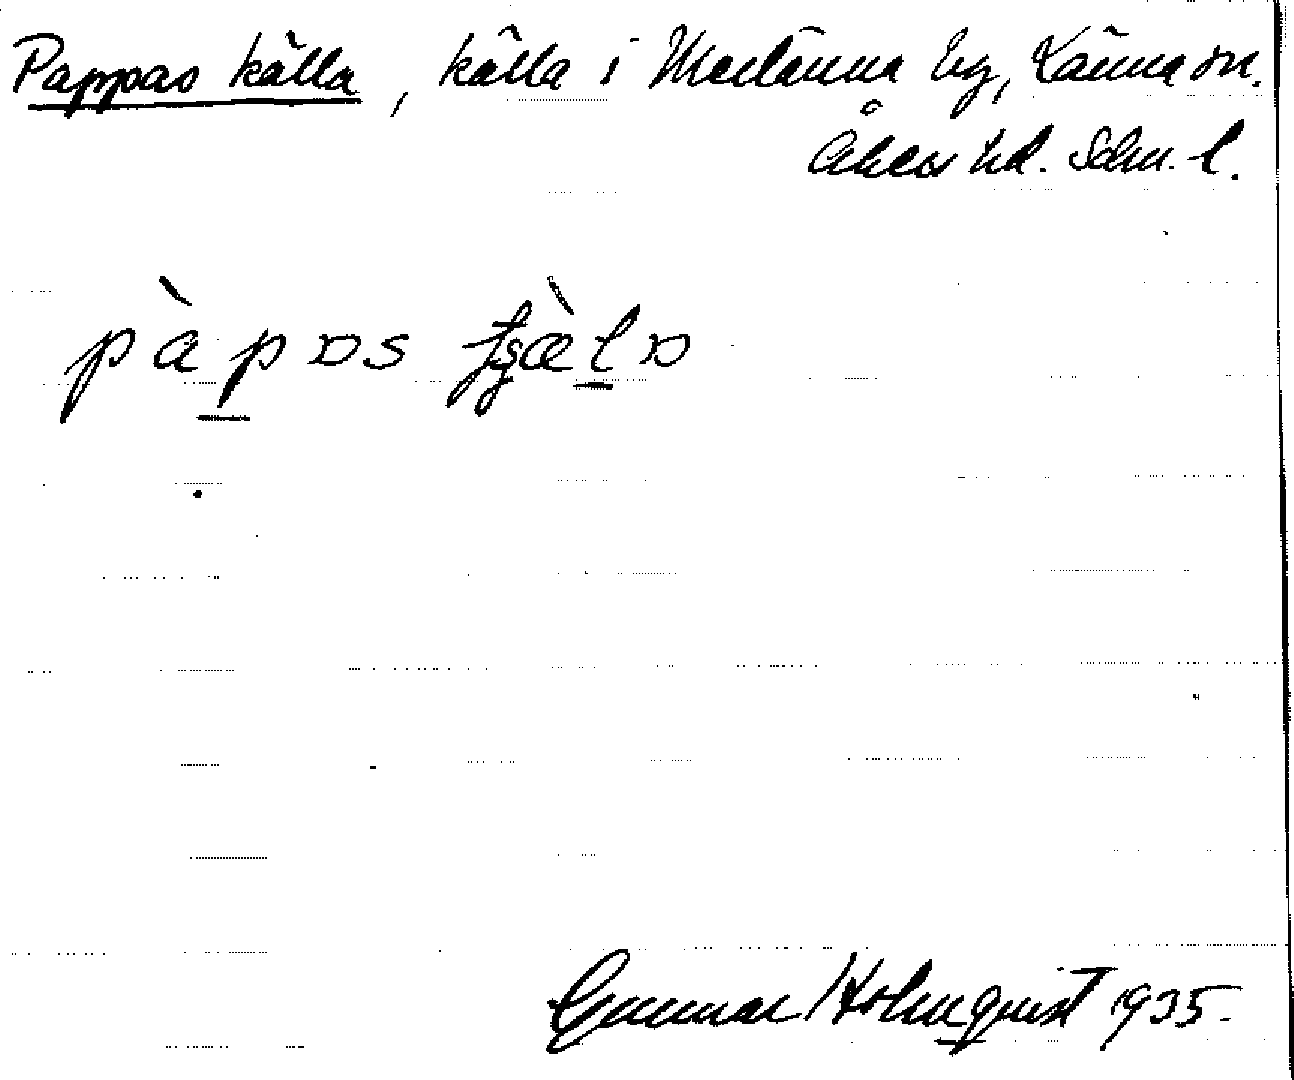 Pappas källa, källa i Merlänna by, Länna sn.
Åkers hd. Sdm. l.
pàpɒs ʃʒæ̀lɒ
Gunnar Holmquist 1935.